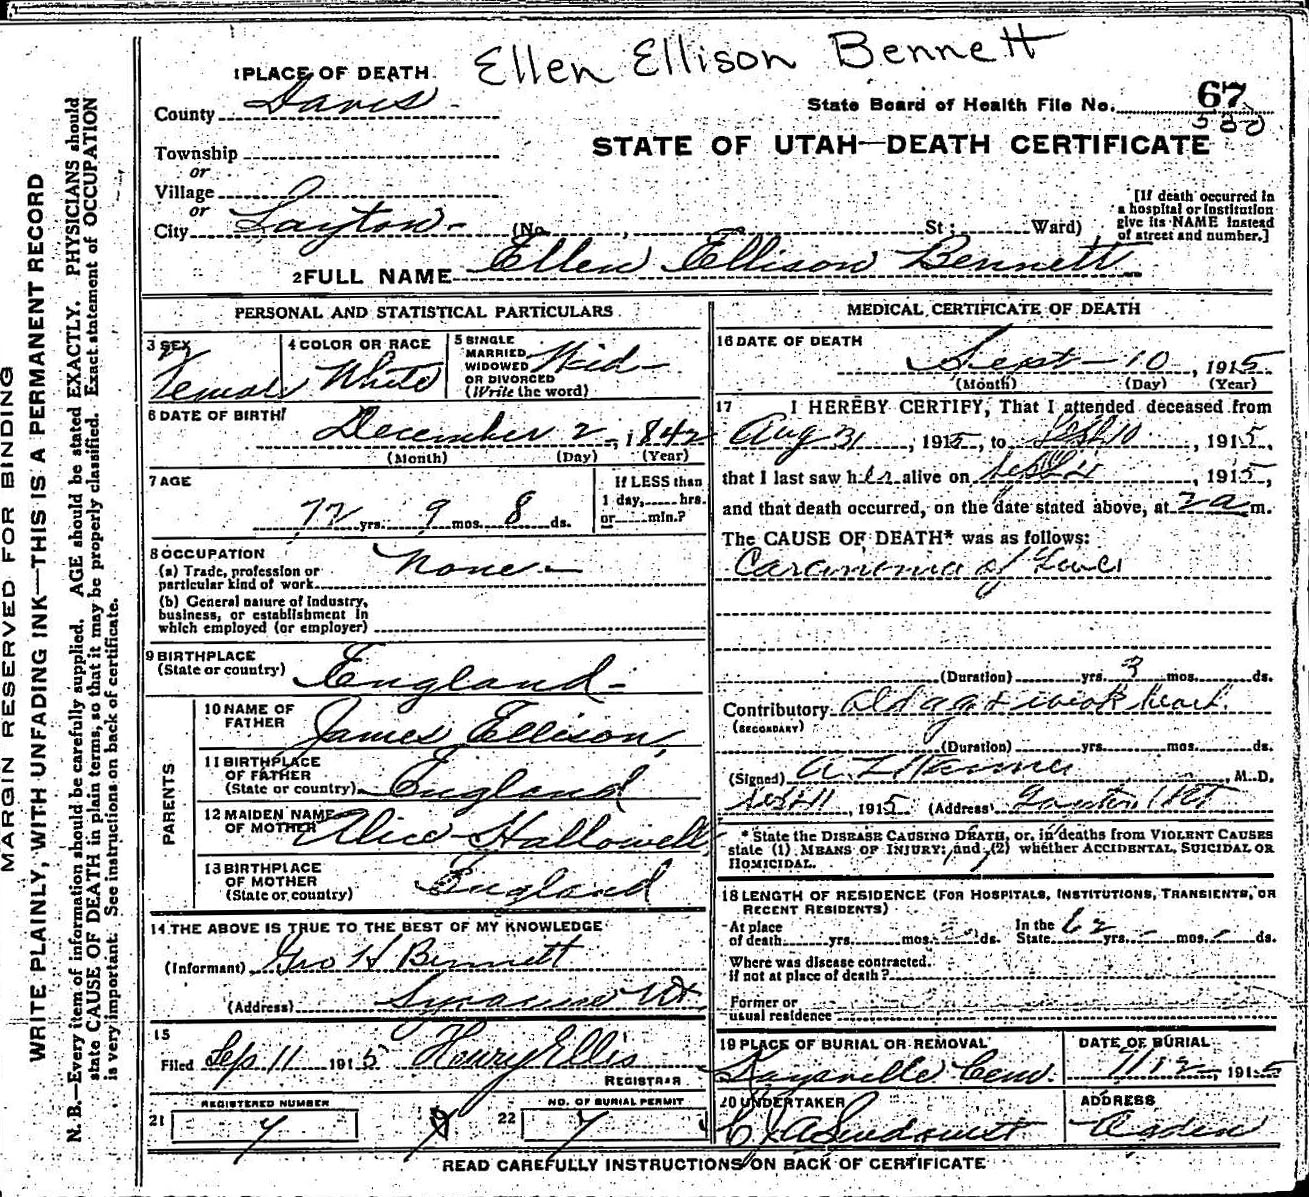 Ellen Ellison Bennett
1 PLACE OF DEATH
County Davis
State Board of Health File No. 67
580
Township
or
Village
or
City Layton
STATE OF UTAH—DEATH CERTIFICATE
(No. , St; Ward)
[If death occurred in
a hospital or institution
give its NAME instead
of street and number.]
2 FULL NAME Ellen Ellison Bennett
PERSONAL AND STATISTICAL PARTICULARS
3 SEX Female
4 COLOR OR RACE White
5 SINGLE
MARRIED
WIDOWED
OR DIVORCED
(Write the word)
Wid
6 DATE OF BIRTH
December 2, 1842
(Month) (Day) (Year)
7 AGE
72 yrs. 9 mos. 8 ds.
If LESS than
1 day, hrs.
or min.?
8 OCCUPATION
(a) Trade, profession or
particular kind of work None
(b) General nature of industry,
business, or establishment in
which employed (or employer)
9 BIRTHPLACE
(State or country) England
PARENTS
10 NAME OF
FATHER James Ellison
11 BIRTHPLACE
OF FATHER
(State or country) England
12 MAIDEN NAME
OF MOTHER Alice Hallowell
13 BIRTHPLACE
OF MOTHER
(State or country) England
14 THE ABOVE IS TRUE TO THE BEST OF MY KNOWLEDGE
(Informant) Geo H Bennett
(Address) Syracuse Ut
15
Filed Sep 11 1915 Henry Ellis
REGISTRAR
REGISTERED NUMBER
21 7
NO. OF BURIAL PERMIT
22 7
MEDICAL CERTIFICATE OF DEATH
16 DATE OF DEATH
Sept 10, 1915
(Month) (Day) (Year)
17 I HEREBY CERTIFY, That I attended deceased from
Aug 31, 1915, to Sept 10, 1915,
that I last saw her alive on Sept 4, 1915,
and that death occurred, on the date stated above, at 2 a m.
The CAUSE OF DEATH* was as follows:
Carcinoma of Liver
(Duration) yrs. 3 mos. ds.
Contributory Old age & weak heart.
(SECONDARY)
(Duration) yrs. mos. ds.
(Signed) M. D.
Sept 11, 1915 (Address) Layton Ut
* State the DISEASE CAUSING DEATH, or, in deaths from VIOLENT CAUSES
state (1) MEANS OF INJURY; and (2) whether ACCIDENTAL, SUICIDAL OR
HOMICIDAL.
18 LENGTH OF RESIDENCE (FOR HOSPITALS, INSTITUTIONS, TRANSIENTS, OR
RECENT RESIDENTS)
At place
of death yrs. mos. ds.
In the
State 62 yrs. - mos. - ds.
Where was disease contracted.
if not at place of death?
Former or
usual residence
19 PLACE OF BURIAL OR REMOVAL
Kaysville Cem.
DATE OF BURIAL
9/12, 1915
20 UNDERTAKER
ADDRESS
Ogden
READ CAREFULLY INSTRUCTIONS ON BACK OF CERTIFICATE
MARGIN RESERVED FOR BINDING
WRITE PLAINLY, WITH UNFADING INK—THIS IS A PERMANENT RECORD
N. B.—Every item of information should be carefully supplied. AGE should be stated EXACTLY. PHYSICIANS should
state CAUSE OF DEATH in plain terms, so that it may be properly classified. Exact statement of OCCUPATION
is very important. See instructions on back of certificate.